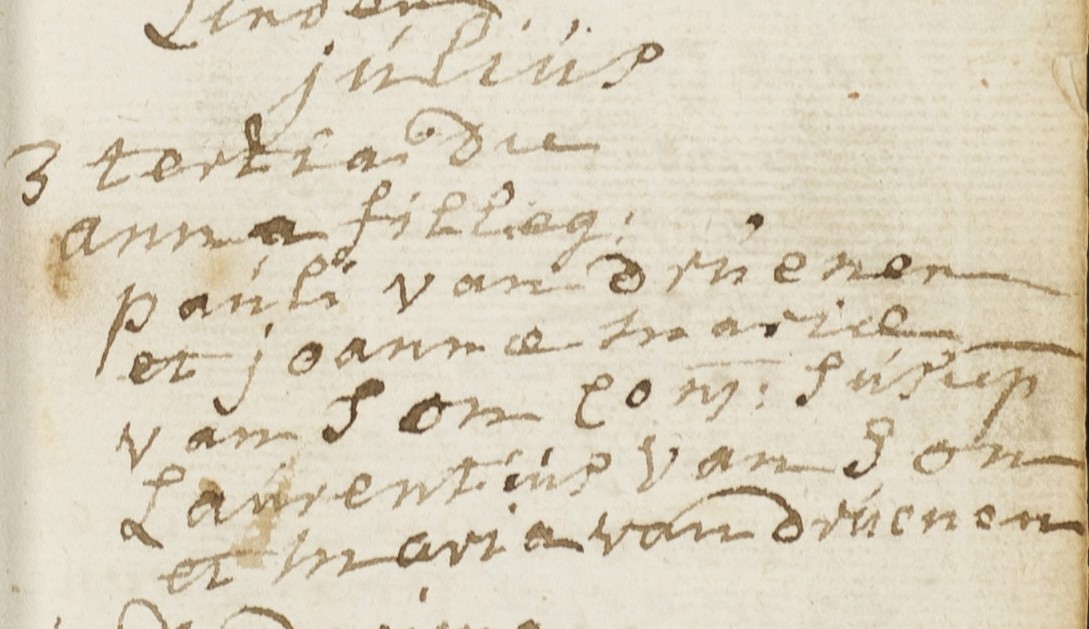 Linden
julius
3 tertia die
anna fil: leg:
pauli van drúenen
et joannæ mariæ
van Son Conj: Súscep
Laúrentiús van Son
et maria van drúenen